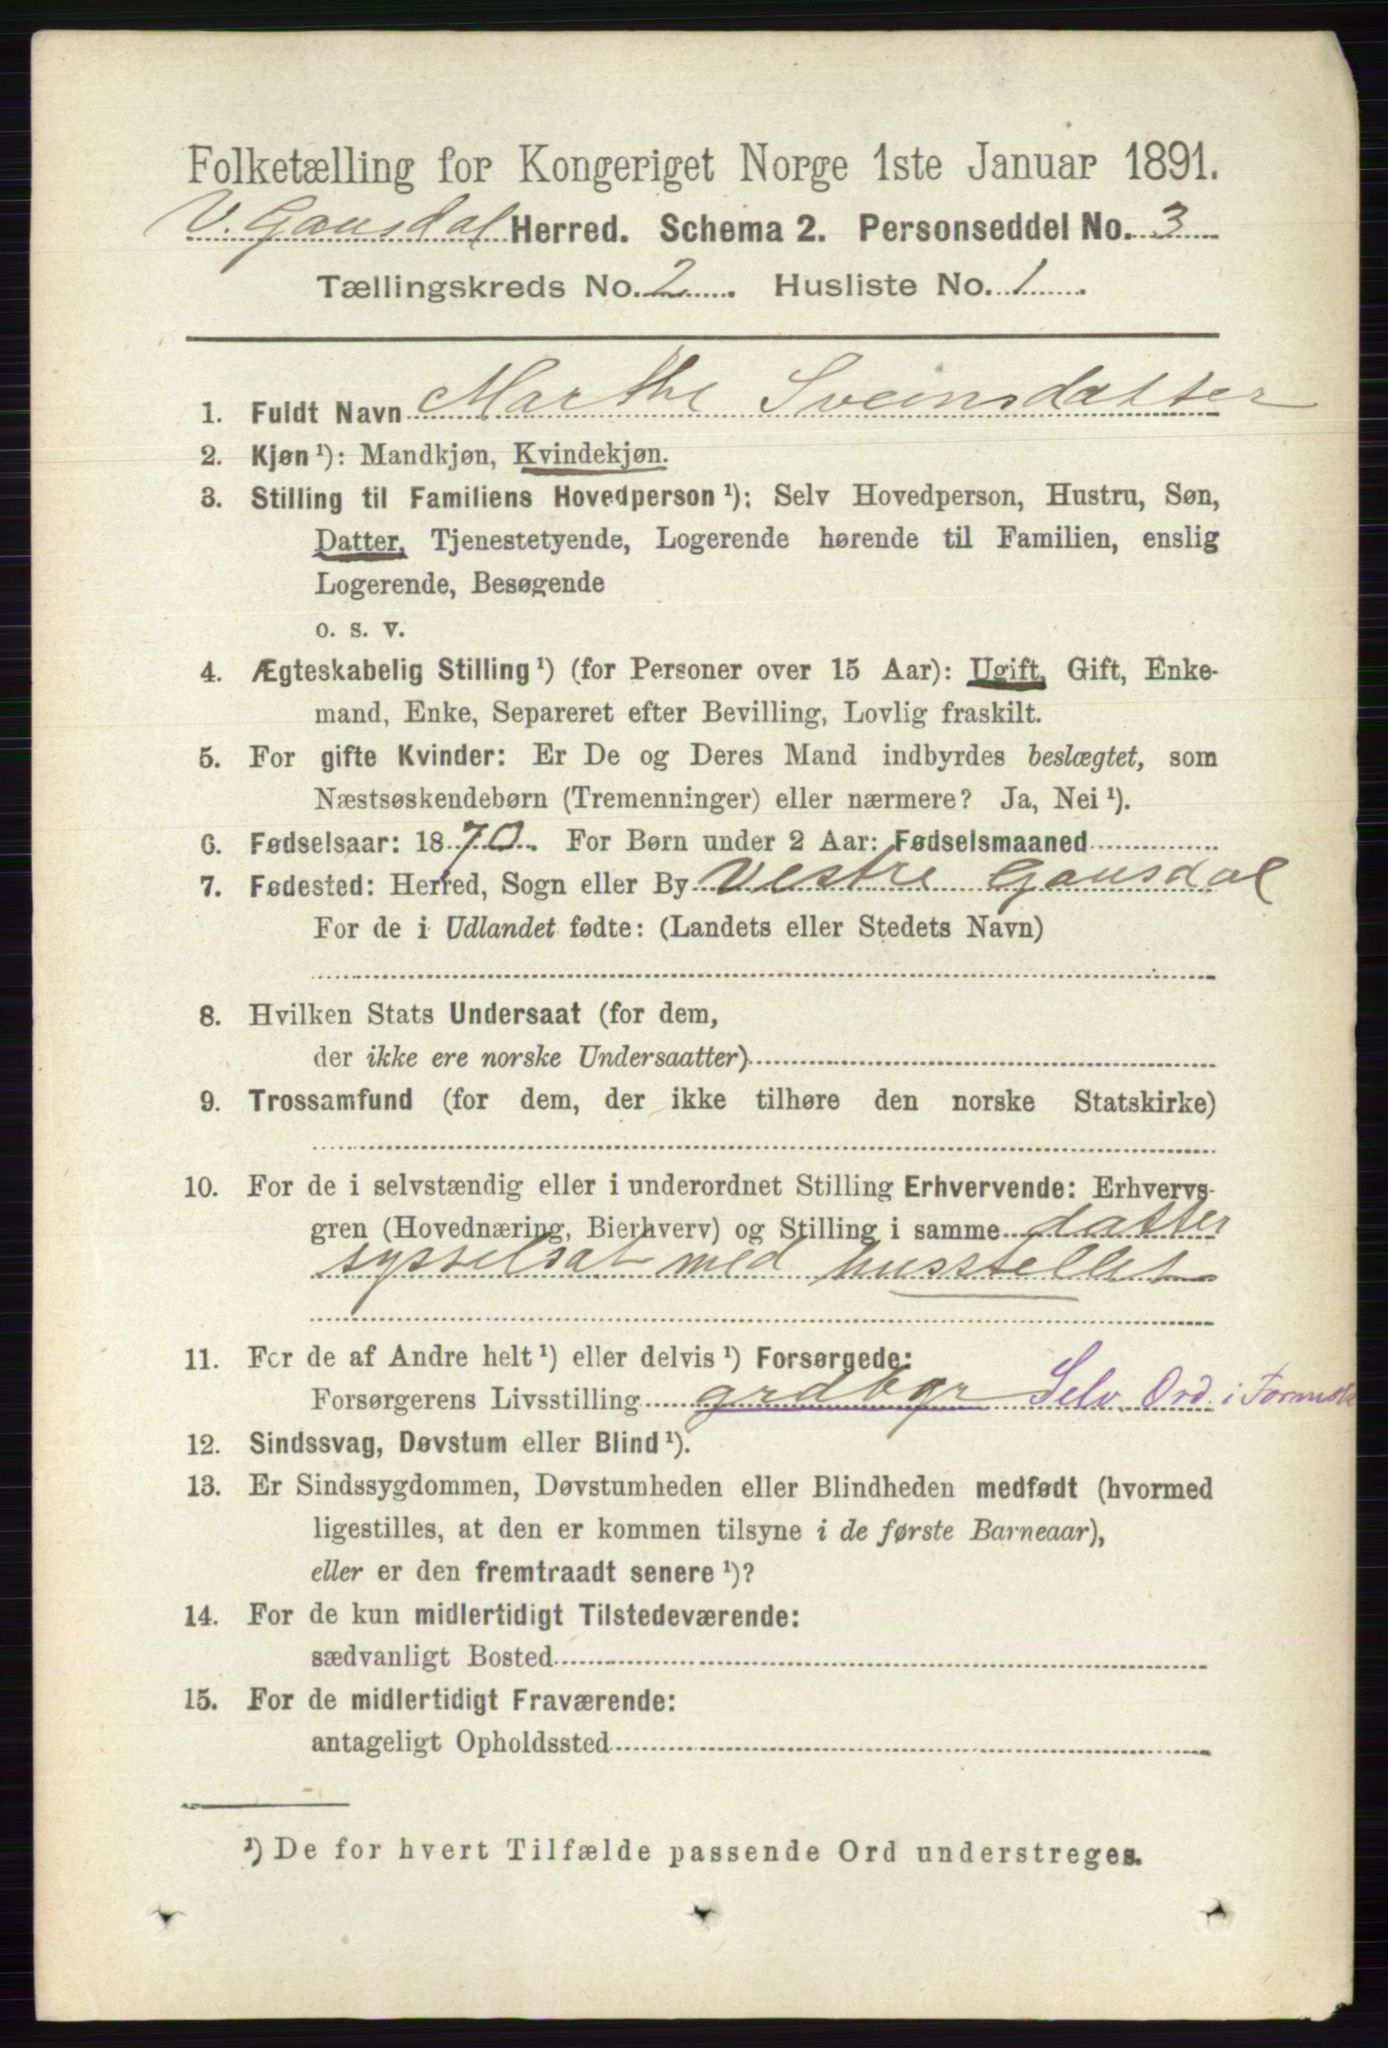 Folketælling for Kongeriget Norge 1ste Januar 1891.
V. Gausdal Herred. Schema 2. Personseddel No. 3
Tællingskreds No. 2. Husliste No. 1.
1. Fuldt Navn Marthe Sveinsdatter
2. Kjøn ¹): Mandkjøn, Kvindekjøn.
3. Stilling til Familiens Hovedperson ¹): Selv Hovedperson, Hustru, Søn,
Datter, Tjenestetyende, Logerende hørende til Familien, enslig
Logerende, Besøgende
o. s. v.
4. Ægteskabelig Stilling ¹) (for Personer over 15 Aar): Ugift, Gift, Enke-
mand, Enke, Separeret efter Bevilling, Lovlig fraskilt.
5. For gifte Kvinder: Er De og Deres Mand indbyrdes beslægtet, som
Næstsøskendebørn (Tremenninger) eller nærmere? Ja, Nei ¹).
6. Fødselsaar: 1870. For Børn under 2 Aar: Fødselsmaaned
7. Fødested: Herred, Sogn eller By Vestre Gausdal
For de i Udlandet fødte: (Landets eller Stedets Navn)
8. Hvilken Stats Undersaat (for dem,
der ikke ere norske Undersaatter)
9. Trossamfund (for dem, der ikke tilhøre den norske Statskirke)
10. For de i selvstændig eller i underordnet Stilling Erhvervende: Erhvervs-
gren (Hovednæring, Bierhverv) og Stilling i samme datter
sysselsat med husstellet
11. For de af Andre helt ¹) eller delvis ¹) Forsørgede:
Forsørgerens Livsstilling grdbgr Selv. Ord. i
12. Sindssvag, Døvstum eller Blind ¹).
13. Er Sindssygdommen, Døvstumheden eller Blindheden medfødt (hvormed
ligestilles, at den er kommen tilsyne i de første Barneaar),
eller er den fremtraadt senere ¹)?
14. For de kun midlertidigt Tilstedeværende:
sædvanligt Bosted
15. For de midlertidigt Fraværende:
antageligt Opholdssted
¹) De for hvert Tilfælde passende Ord understreges.